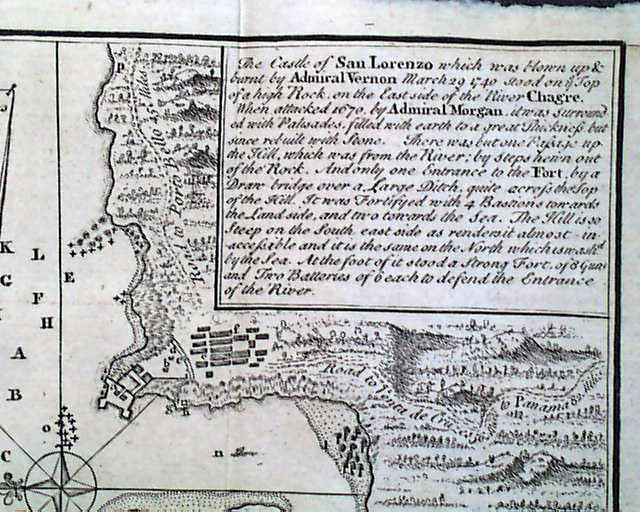 The Castle of San Lorenzo which was blown up &
burnt by Admiral Vernon March 29 1740 stood on ye Top
of a high Rock, on the East side of the River Chagre.
When attacked 1670, by Admiral Morgan, it was surround
ed with Palisades, filled with earth to a great Thickness but
since rebuilt with Stone. There was but one Passage up
the Hill, which was from the River; by steps hewn out
of the Rock. And only one Entrance to the Fort, by a
Draw bridge over a Large Ditch, quite across the Top
of the Hill. It was Fortifyed with 4 Bastions towards
the Land side, and two towards the Sea. The Hill is so
Steep on the South east side as renders it almost in-
accessible and it is the same on the North which is wash'd
by the Sea. At the foot of it stood a Strong Fort, of 8 Guns
and Two Batteries of 6 each to defend the Entrance
of the River.
Road to Porto Bello
K
L
G
E
F
H
A
B
o
C
n
Road to
de
to Panama